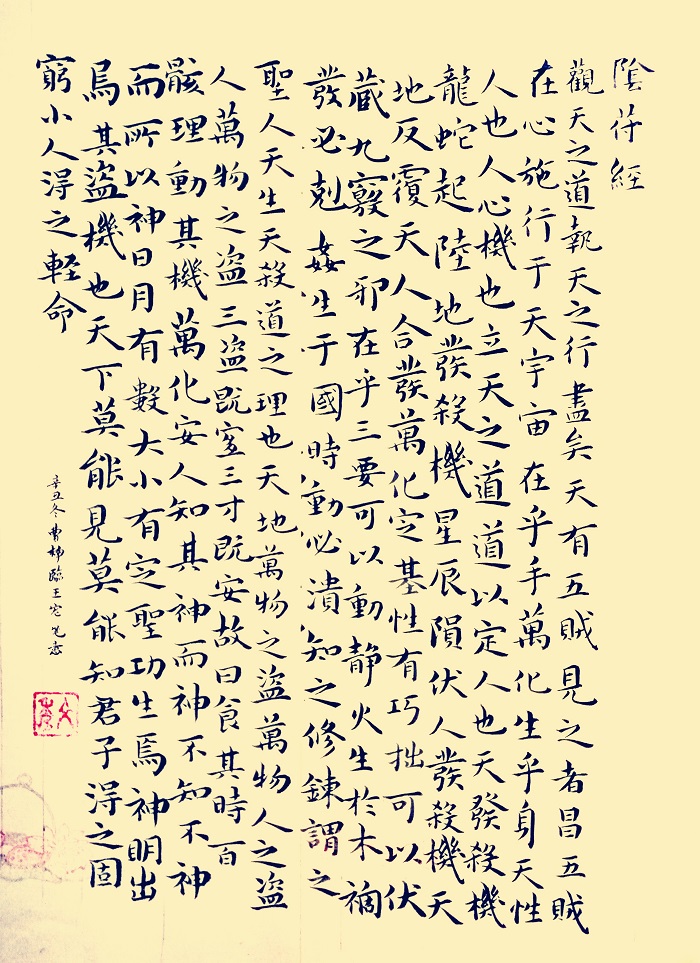 陰苻經
觀天之道執天之行盡矣天有五賊見之者昌五賊
在心施行于天宇宙在乎手萬化生乎身天性
人也人心機也立天之道道以定人也天發殺機
龍蛇起陸地發殺機星辰隕伏人發殺機天
地反覆天人合發萬化定基性有巧拙可以伏
藏九竅之邪在乎三要可以動靜火生於木禍
發必剋姦生于國時動必潰知之修鍊謂之
聖人天生天殺道之理也天地萬物之盗萬物人之盗
人萬物之盗三盗既宜三才既安故曰食其時百
骸理動其機萬化安人知其神而神不知不神
而所以神日月有數大小有定聖功生焉神明出
焉其盗機也天下莫能見莫能知君子得之固
窮小人得之輕命
辛丑冬曹臨王意